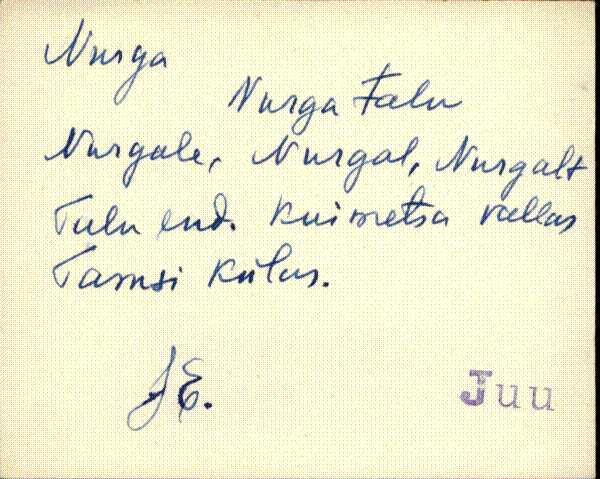 Nurga
Nurga Talu
Nurgale, Nurgal, Nurgalt
Talu end. Kuimetsa vallas
Tamsi külas.
J E.
Juu